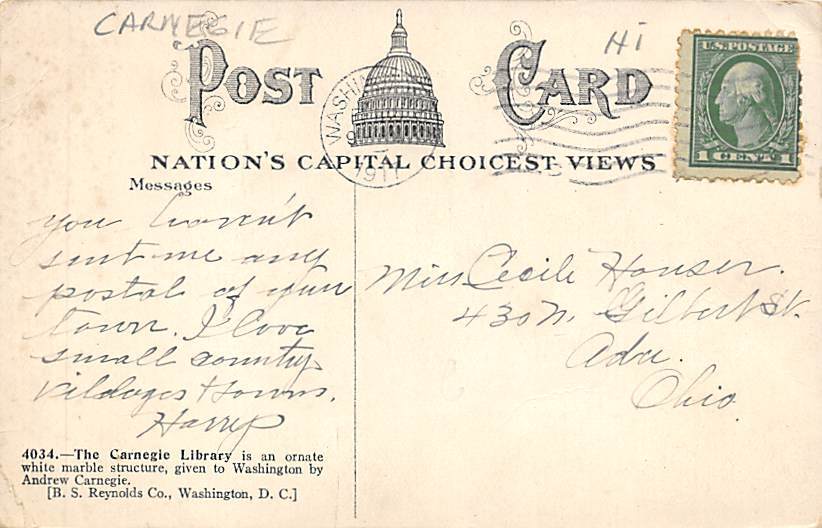 CARNEGIE
Hi
POST CARD
U.S. POSTAGE
1 CENT 1
WASHIN
1917
NATION'S CAPITAL CHOICEST VIEWS
Messages
You haven't
sent me any
postal of your
town. I love
small country
villages & towns.
Harry
Miss Cecile Houser.
430 N. Gilbert St.
Ada.
Ohio.
4034.—The Carnegie Library is an ornate
white marble structure, given to Washington by
Andrew Carnegie.
[B. S. Reynolds Co., Washington, D. C.]